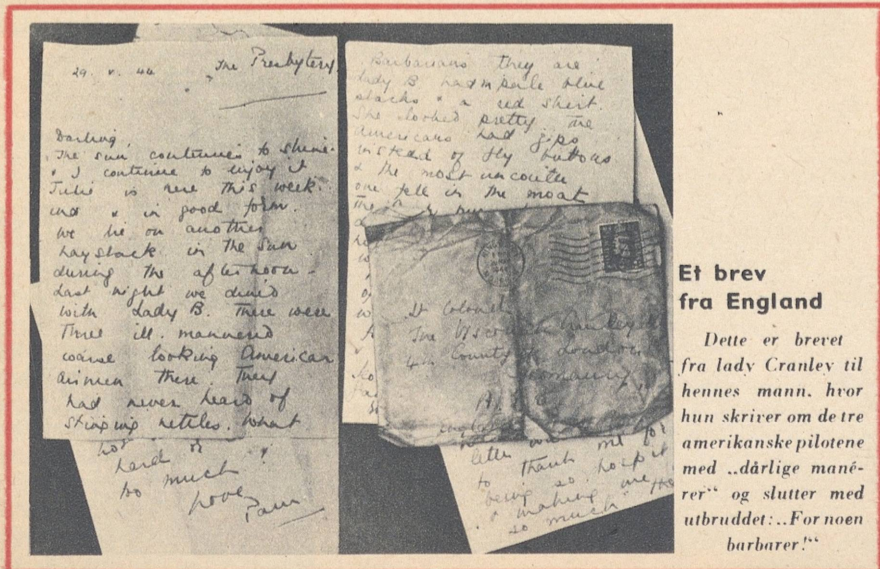 29. v. 44 The Presbytery
Darling,
The sun continues to shine.
& I continue to enjoy it
Julie is here this week
and is in good form.
We lie on another
haystack in the sun
during the afternoon -
Last night we dined
with Lady B. There were
three ill. mannered
coarse looking American
airmen there. They
had never heard of
stinging nettles. What
Barbarians they are
Lady B had on pale blue
slacks & a red shirt.
She looked pretty. The
Americans had zips
instead of fly buttons
& the most uncouth
one fell in the moat
Lt Colonel
The Viscount Cranley
4th County of London
Yeomanry
letter
to thank me for
being so
& making
so much
so much
love
Pam
Et brev
fra England
Dette er brevet
fra lady Cranley til
hennes mann. hvor
hun skriver om de tre
amerikanske pilotene
med „dårlige mané-
rer“ og slutter med
utbruddet: „For noen
barbarer!“